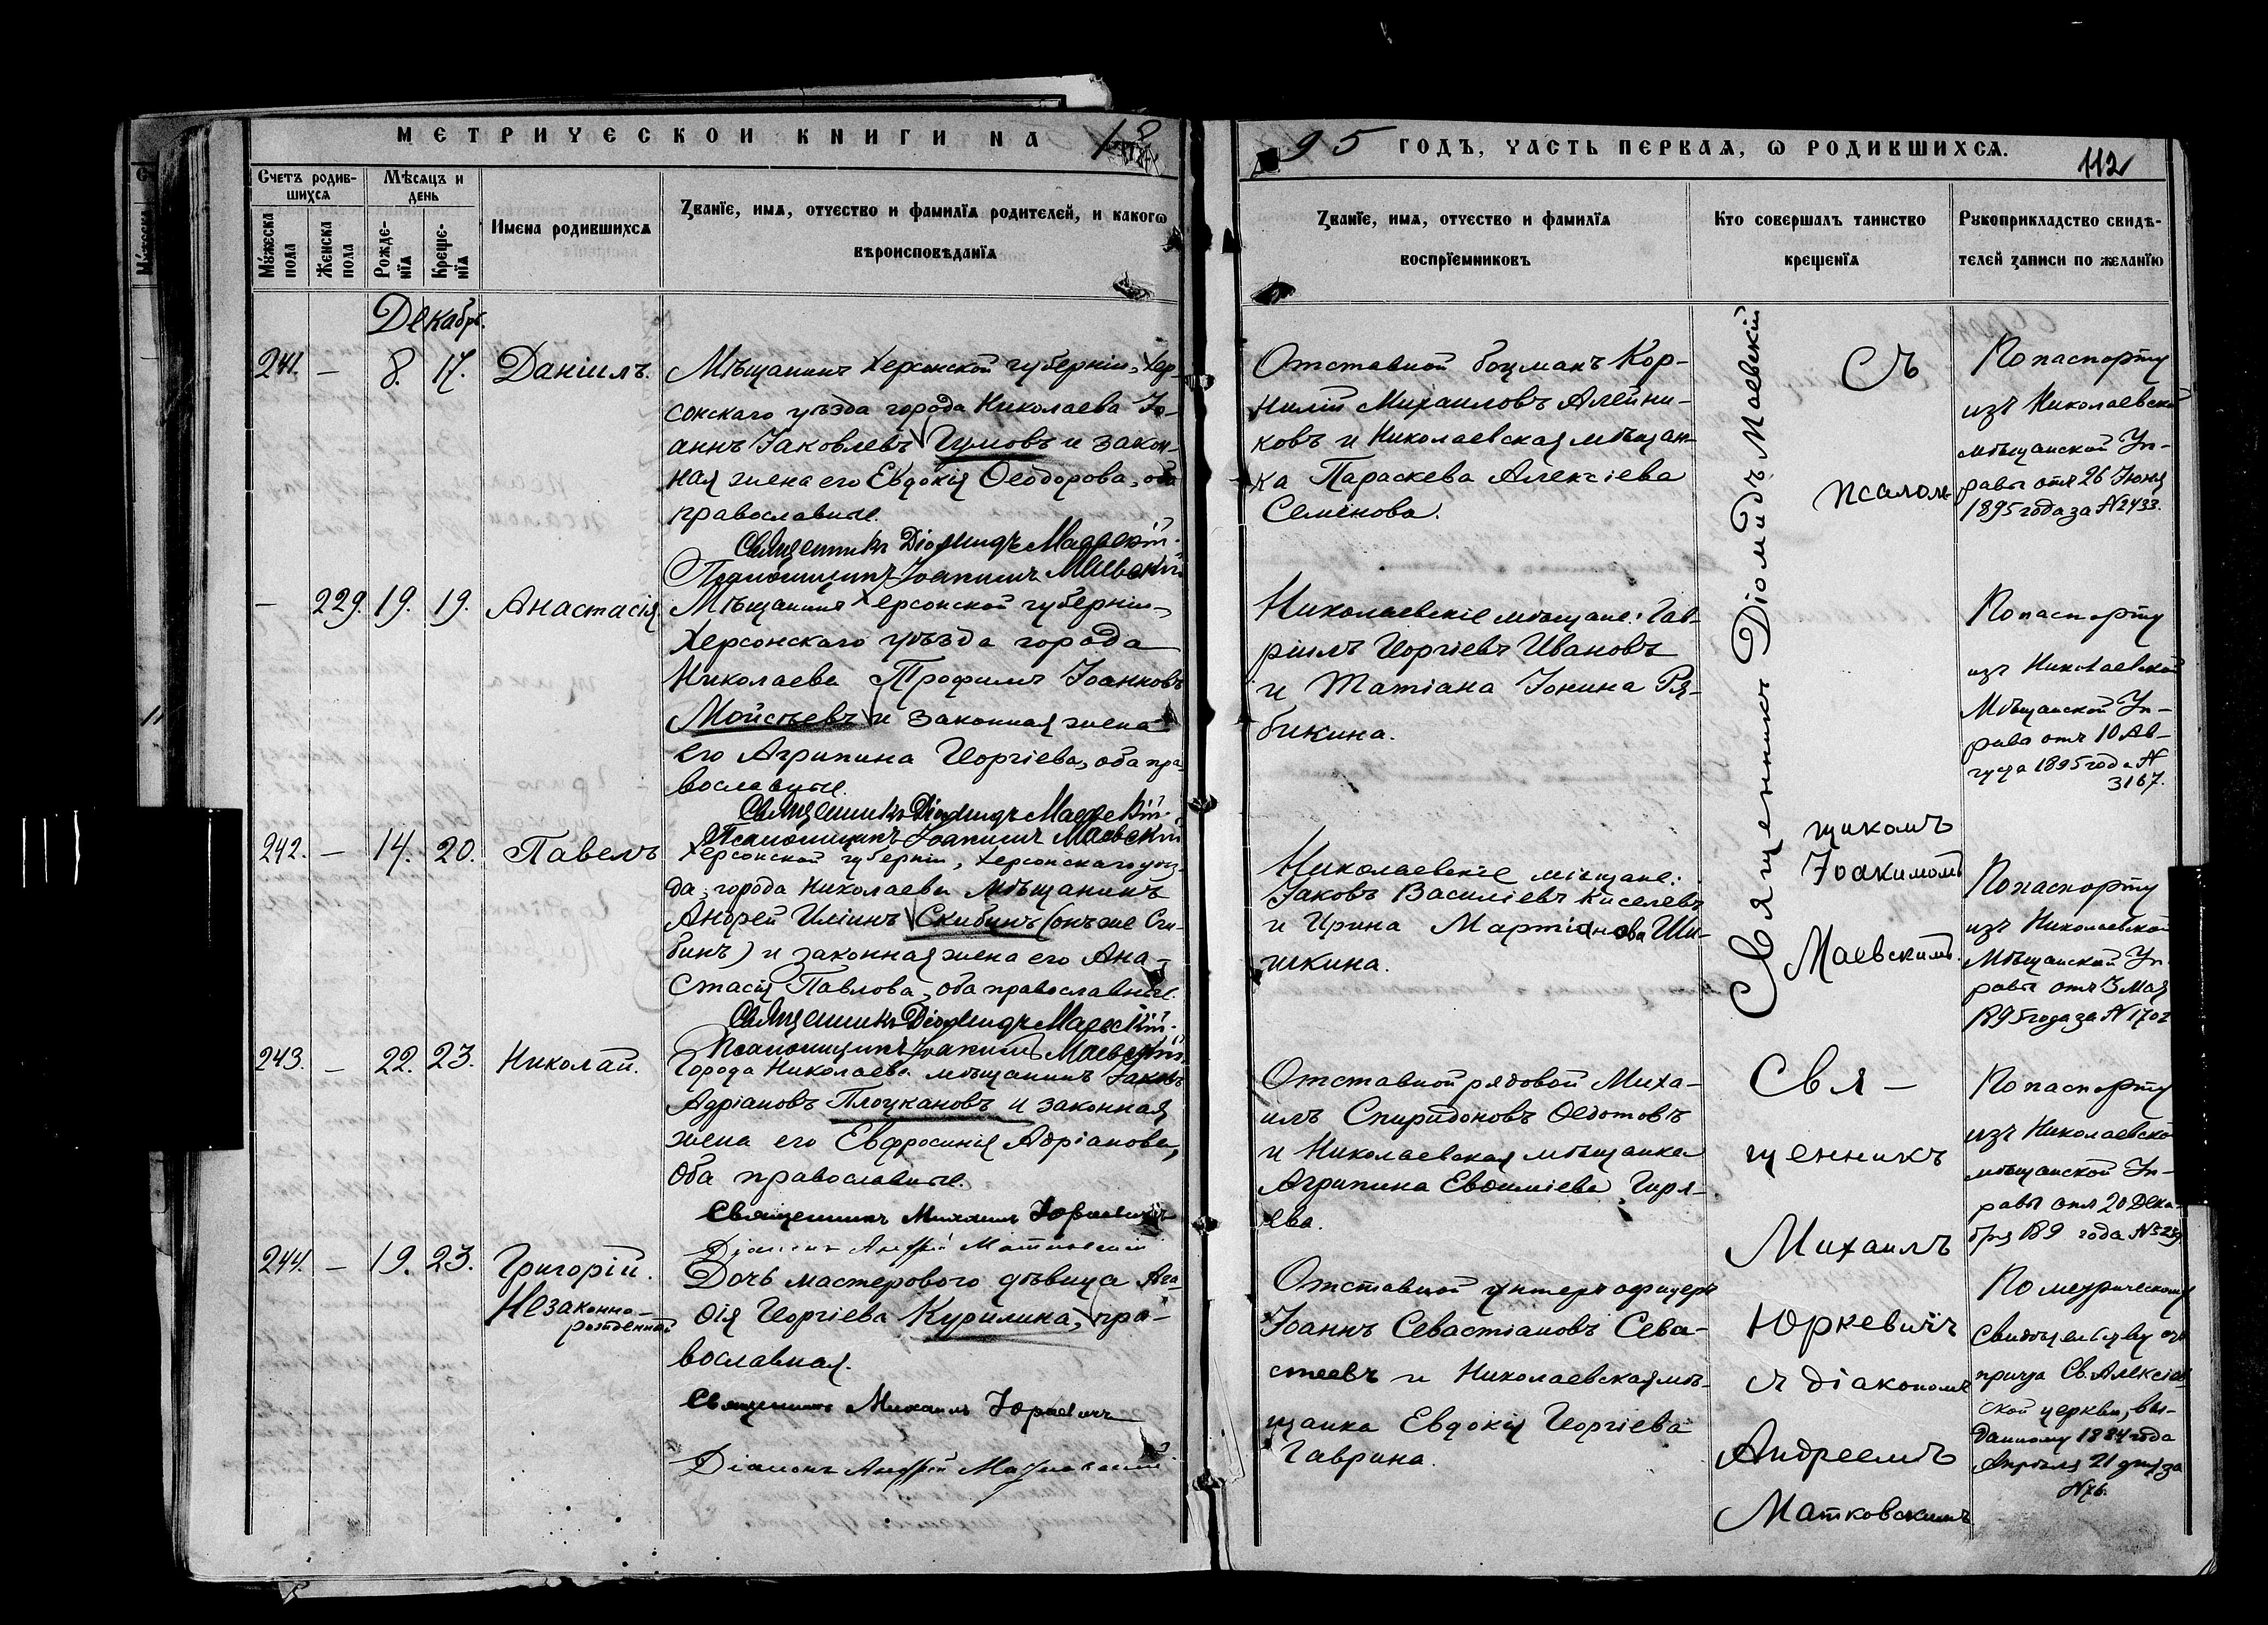 МЕТРИЧЕСКОЙ КНИГИ НА 18
95 ГОДЪ, ЧАСТЬ ПЕРВАЯ, Ѡ РОДИВШИХСЯ.
112
Счетъ родив-
шихся
Мѣсяцъ и
день
Мужеска
пола
Женска
пола
Рожде-
нїя
Креще-
нїя
Имена родившихся
Званїе, имя, отчество и фамилїя родителей, и какогѡ
вѣроисповѣданїя
Званїе, имя, отчество и фамилїя
воспрїемниковъ
Кто совершалъ таинство
крещенїя
Рукоприкладство свидѣ-
телей записи по желанїю
Декабрь.
241. — 8. 17. Даніилъ.
Мѣщанинъ Херсонской губерніи, Хер-
сонскаго уѣзда города Николаева Іо-
аннъ Іаковлевъ Гумовъ и закон-
ная жена его Евдокія Ѳеодорова, оба
православные.
Священникъ Діомидъ Маевскій.
Псаломщикъ Іоакимъ Маевскій
Отставной боцманъ Кор-
нилій Михаиловъ Алейни-
ковъ и Николаевская мѣщан-
ка Параскева Алексіева
Семенова.
По паспорту
изъ Николаевской
мѣщанской Уп-
равы отъ 26 Іюня
1895 года за № 2433.
— 229. 19. 19. Анастасія
Мѣщанинъ Херсонской губерніи,
Херсонскаго уѣзда города
Николаева Трофимъ Іоанновъ
Мойсѣевъ и законная жена
его Агрипина Георгіева, оба пра-
вославные.
Священникъ Діомидъ Маевскій.
Псаломщикъ Іоакимъ Маевскій
Николаевскіе мѣщане: Гав-
ріилъ Георгіевъ Ивановъ
и Татіана Іонина Ря-
бикина.
По паспорту
изъ Николаевской
Мѣщанской Уп-
равы отъ 10 Ав-
густа 1895 года №
3167.
242. — 14. 20. Павелъ
Херсонской губерніи, Херсонскаго уѣз-
да, города Николаева мѣщанинъ
Андрей Иліинъ Скибинъ (онъ же Ски-
бинъ) и законная жена его Ана-
стасія Павлова, оба православные.
Священникъ Діомидъ Маевскій.
Псаломщикъ Іоакимъ Маевскій.
Николаевскіе мѣщане:
Іаковъ Василіевъ Киселевъ
и Ирина Мартіанова Ши-
шкина.
По паспорту
изъ Николаевской
Мѣщанской Уп-
равы отъ 3 Мая
1895 года за № 1702
Священникъ Діомидъ Маевскій
Съ
псалом-
щикомъ
Іоакимомъ
Маевскимъ.
243. — 22. 23. Николай.
Города Николаева мѣщанинъ Іаковъ
Адріановъ Плоцкановъ и законная
жена его Евфросинія Адріанова,
оба православные.
Священникъ Михаилъ Юркевичъ
Діаконъ Андрей Матковскій
Отставной рядовой Миха-
илъ Спиридоновъ Ѳедотовъ
и Николаевская мѣщанка
Агрипина Евѳиміева Гиря-
ева.
По паспорту
изъ Николаевской
мѣщанской Уп-
равы отъ 20 Дека-
бря 189 года
244. — 19. 23. Григорій.
Незаконно-
рожденный
Дочь мастерового дѣвица Ага-
ѳія Георгіева Курилина, пра-
вославная.
Священникъ Михаилъ Юркевичъ
Діаконъ Андрей Матковскій
Отставной унтеръ офицеръ
Іоаннъ Севастіановъ Сева-
стеевъ и Николаевская мѣ-
щанка Евдокія Георгіева
Гаврина.
Свя-
щенникъ
Михаилъ
Юркевичъ
съ діакономъ
Андреемъ
Матковскимъ
По метрическому
свидѣтельству отъ
причта Св. Алексіев-
ской церкви, вы-
данному 1884 года
Апрѣля 21 дня за
№ 76.